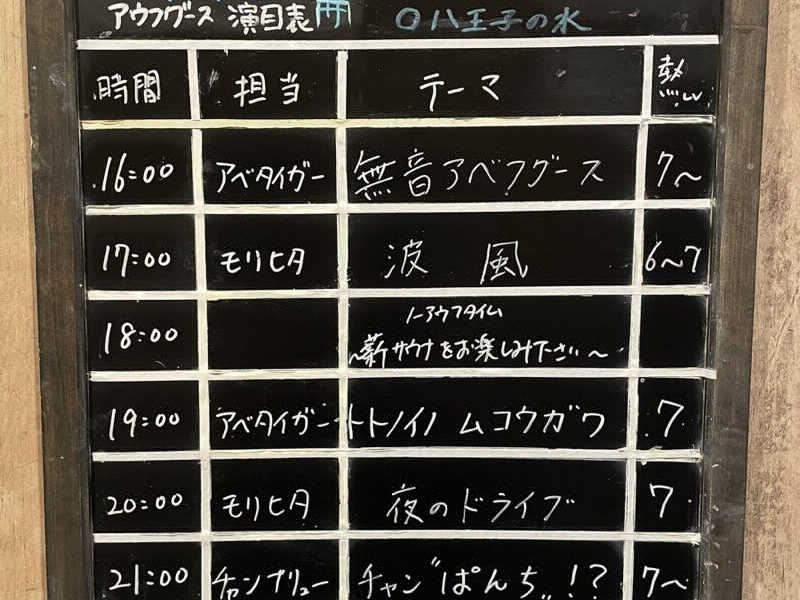 アウフグース 演目表 ○八王子の水
時間 担当 テーマ 熱Lv
16:00 アベタイガー 無音アベフグース 7〜
17:00 モリヒタ 波 風 6〜7
18:00 ノーアウフタイム
〜薪サウナをお楽しみ下さい〜
19:00 アベタイガー トトノイノ ムコウガワ 7
20:00 モリヒタ 夜のドライブ 7
21:00 チャンプリュー チャン"ぱんち„!? 7〜